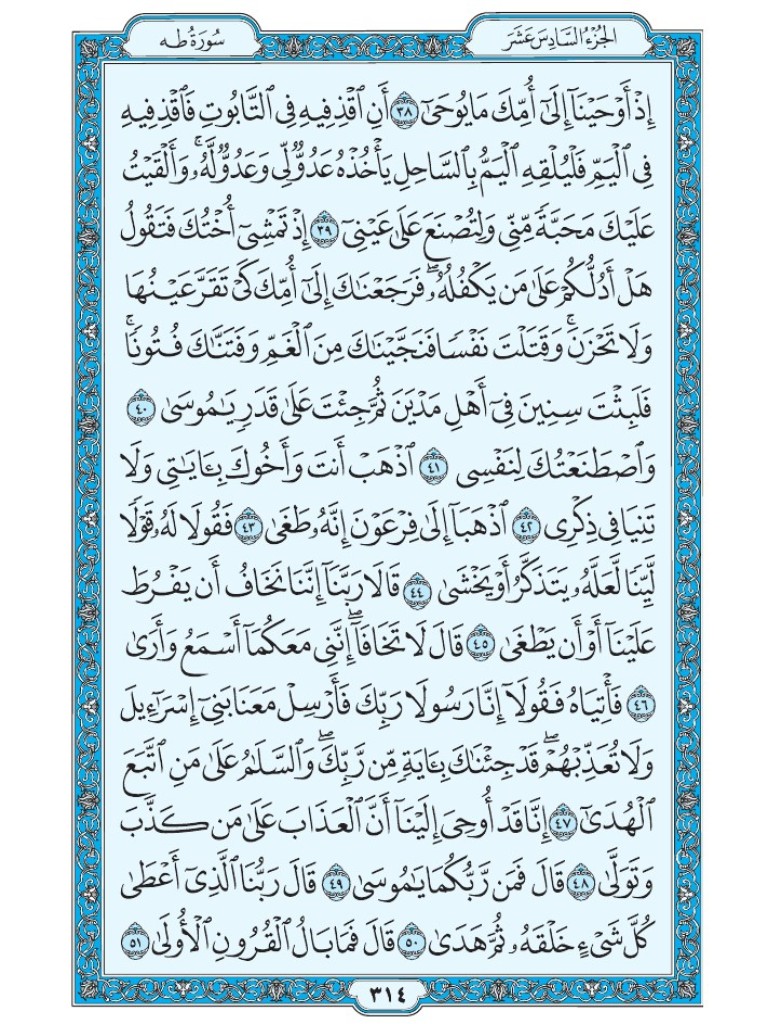 الجُزْءُ السَّادِسَ عَشَرَ
سُورَةُ طه
إِذْ أَوْحَيْنَآ إِلَىٰٓ أُمِّكَ مَا يُوحَىٰٓ ٣٨ أَنِ ٱقْذِفِيهِ فِى ٱلتَّابُوتِ فَٱقْذِفِيهِ
فِى ٱلْيَمِّ فَلْيُلْقِهِ ٱلْيَمُّ بِٱلسَّاحِلِ يَأْخُذْهُ عَدُوٌّ لِّى وَعَدُوٌّ لَّهُۥ ۚ وَأَلْقَيْتُ
عَلَيْكَ مَحَبَّةً مِّنِّى وَلِتُصْنَعَ عَلَىٰ عَيْنِىٓ ٣٩ إِذْ تَمْشِىٓ أُخْتُكَ فَتَقُولُ
هَلْ أَدُلُّكُمْ عَلَىٰ مَن يَكْفُلُهُۥ ۖ فَرَجَعْنَاكَ إِلَىٰٓ أُمِّكَ كَىْ تَقَرَّ عَيْنُهَا
وَلَا تَحْزَنَ ۚ وَقَتَلْتَ نَفْسًا فَنَجَّيْنَاكَ مِنَ ٱلْغَمِّ وَفَتَنَّاكَ فُتُونًا ۚ
فَلَبِثْتَ سِنِينَ فِىٓ أَهْلِ مَدْيَنَ ثُمَّ جِئْتَ عَلَىٰ قَدَرٍ يَامُوسَىٰ ٤٠
وَٱصْطَنَعْتُكَ لِنَفْسِى ٤١ ٱذْهَبْ أَنتَ وَأَخُوكَ بِـَٔايَاتِى وَلَا
تَنِيَا فِى ذِكْرِى ٤٢ ٱذْهَبَآ إِلَىٰ فِرْعَوْنَ إِنَّهُۥ طَغَىٰ ٤٣ فَقُولَا لَهُۥ قَوْلًا
لَّيِّنًا لَّعَلَّهُۥ يَتَذَكَّرُ أَوْ يَخْشَىٰ ٤٤ قَالَا رَبَّنَآ إِنَّنَا نَخَافُ أَن يَفْرُطَ
عَلَيْنَآ أَوْ أَن يَطْغَىٰ ٤٥ قَالَ لَا تَخَافَآ ۖ إِنَّنِى مَعَكُمَآ أَسْمَعُ وَأَرَىٰ
٤٦ فَأْتِيَاهُ فَقُولَآ إِنَّا رَسُولَا رَبِّكَ فَأَرْسِلْ مَعَنَا بَنِىٓ إِسْرَٰٓءِيلَ
وَلَا تُعَذِّبْهُمْ ۖ قَدْ جِئْنَاكَ بِـَٔايَةٍ مِّن رَّبِّكَ ۖ وَٱلسَّلَٰمُ عَلَىٰ مَنِ ٱتَّبَعَ
ٱلْهُدَىٰٓ ٤٧ إِنَّا قَدْ أُوحِىَ إِلَيْنَآ أَنَّ ٱلْعَذَابَ عَلَىٰ مَن كَذَّبَ
وَتَوَلَّىٰ ٤٨ قَالَ فَمَن رَّبُّكُمَا يَامُوسَىٰ ٤٩ قَالَ رَبُّنَا ٱلَّذِىٓ أَعْطَىٰ
كُلَّ شَىْءٍ خَلْقَهُۥ ثُمَّ هَدَىٰ ٥٠ قَالَ فَمَا بَالُ ٱلْقُرُونِ ٱلْأُولَىٰ ٥١
٣١٤